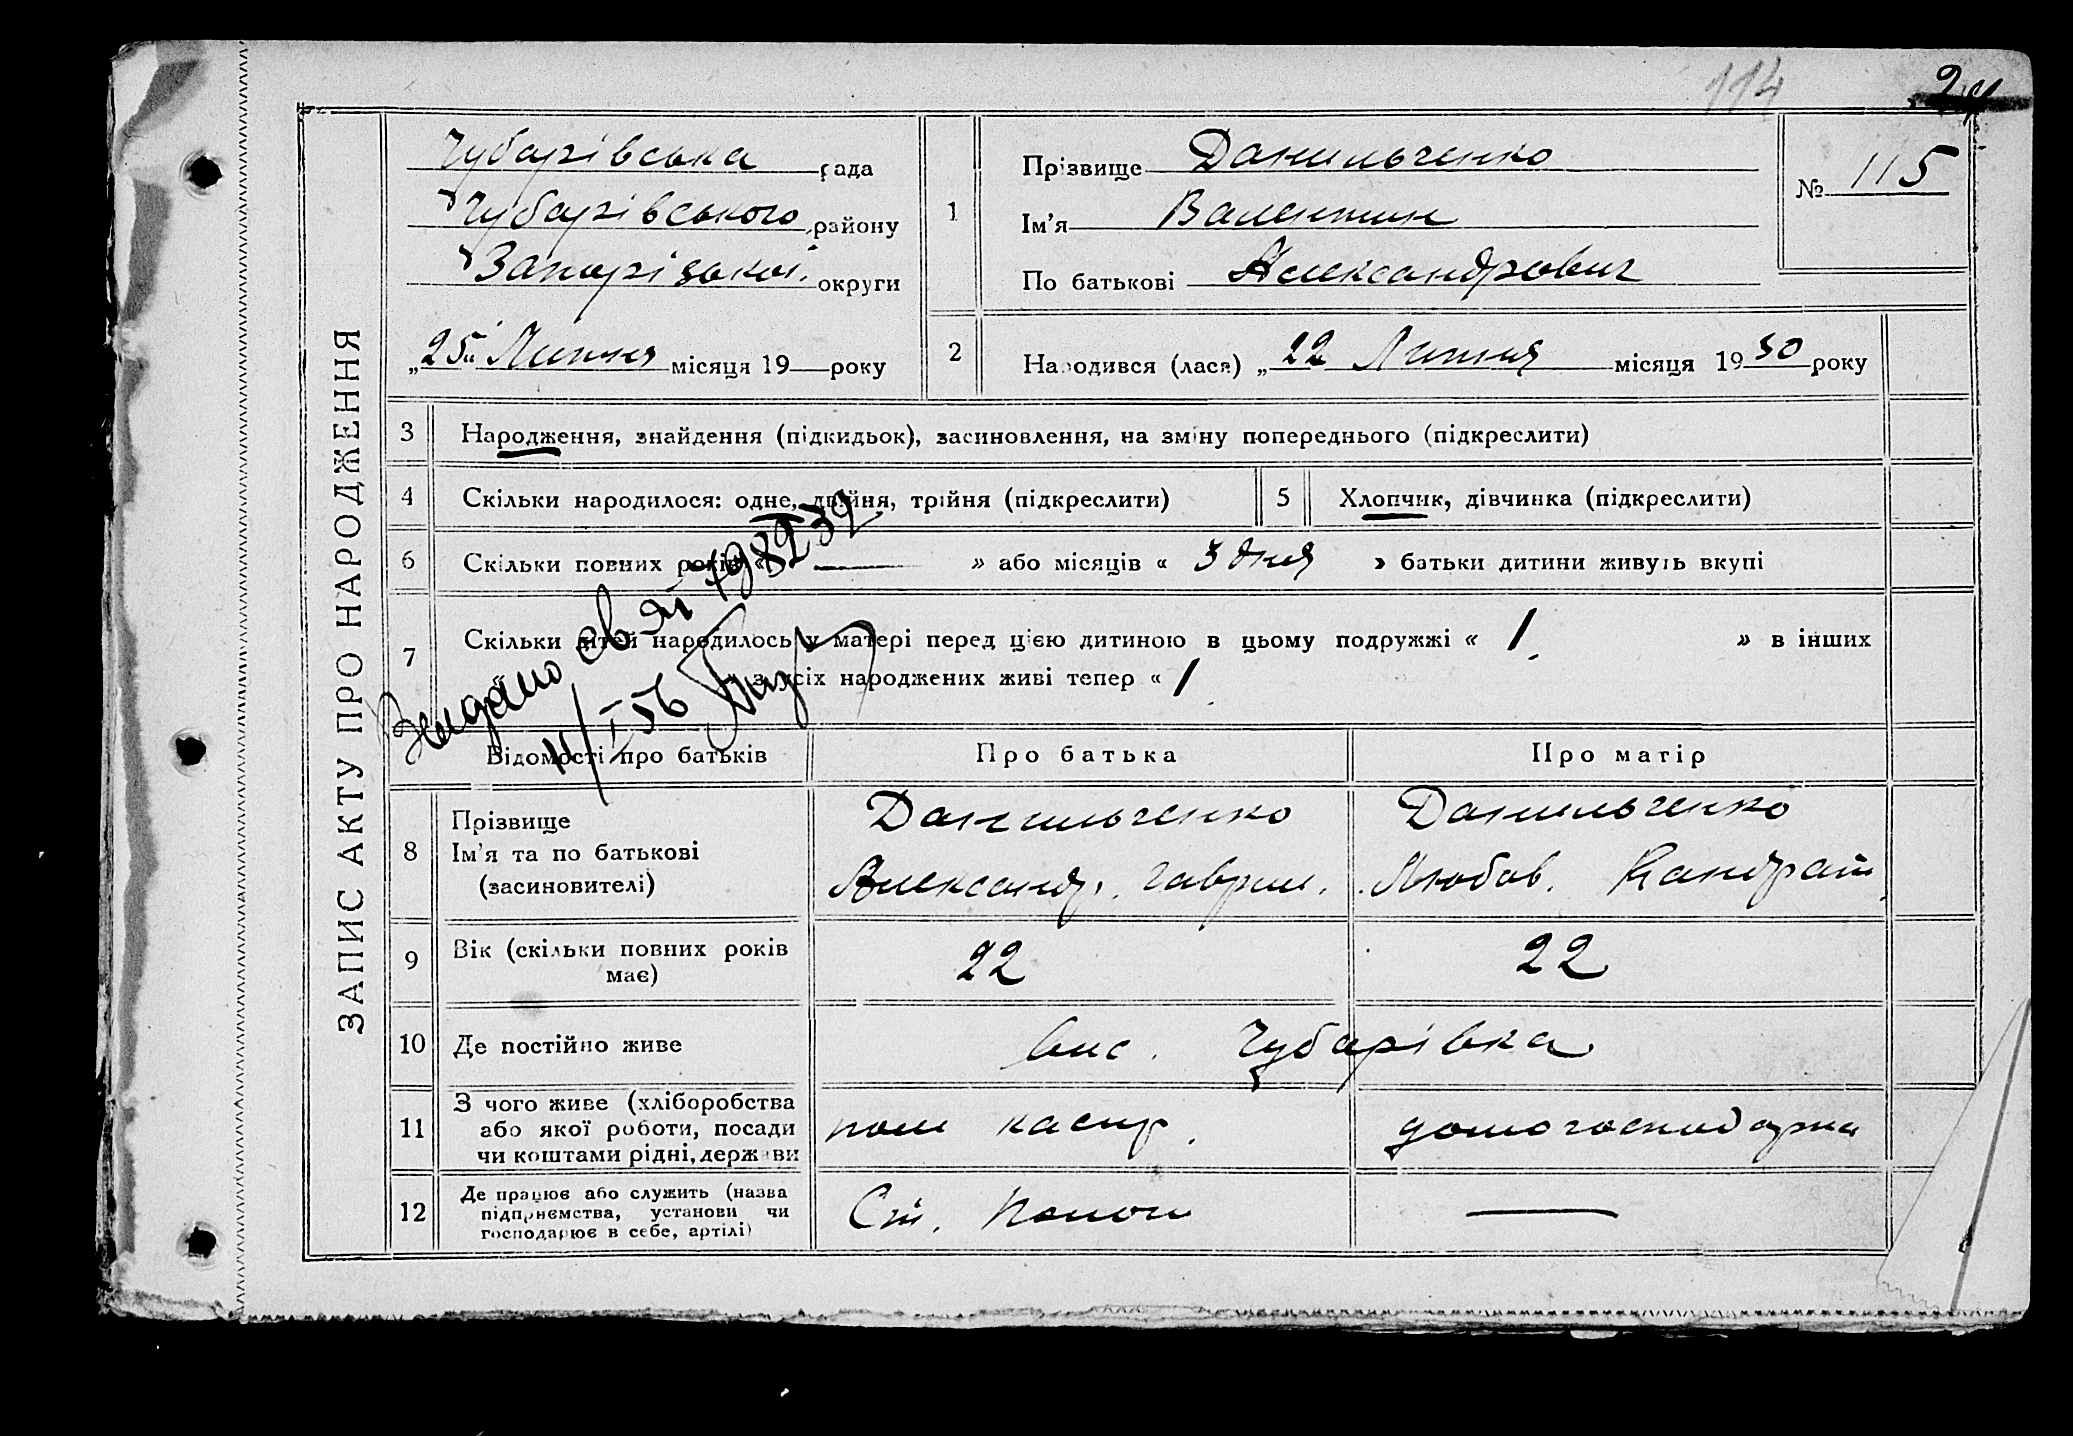 114
24
ЗАПИС АКТУ ПРО НАРОДЖЕННЯ
Чубарівська рада
Чубарівського району
Запорізької округи
„25" Липня місяця 19 року
1
Прізвище Данильченко
Ім'я Валентин
По батькові Александрович
№ 115
2
Народився (лася) „22 Липня місяця 1930 року
3 Народження, знайдення (підкидьок), засиновлення, на зміну попереднього (підкреслити)
4 Скільки народилося: одне, двійня, трійня (підкреслити)
5 Хлопчик, дівчинка (підкреслити)
6 Скільки повних років « » або місяців « 3 дня » батьки дитини живуть вкупі
7 Скільки дітей народилось у матері перед цією дитиною в цьому подружжі « 1 » в інших
з усіх народжених живі тепер « 1
Відомості про батьків Про батька Про матір
8 Прізвище
Ім'я та по батькові
(засиновителі)
Данильченко
Александр. Гаврил.
Данильченко
Любов. Кандрат
9 Вік (скільки повних років має)
22
22
10 Де постійно живе
вис. Чубарівка
11 З чого живе (хліборобства
або якої роботи, посади
чи коштами рідні, держави
пом касир.
домогосподарка
12 Де працює або служить (назва
підприємства, установи чи
господарює в себе, артілі)
Ст. Пологи